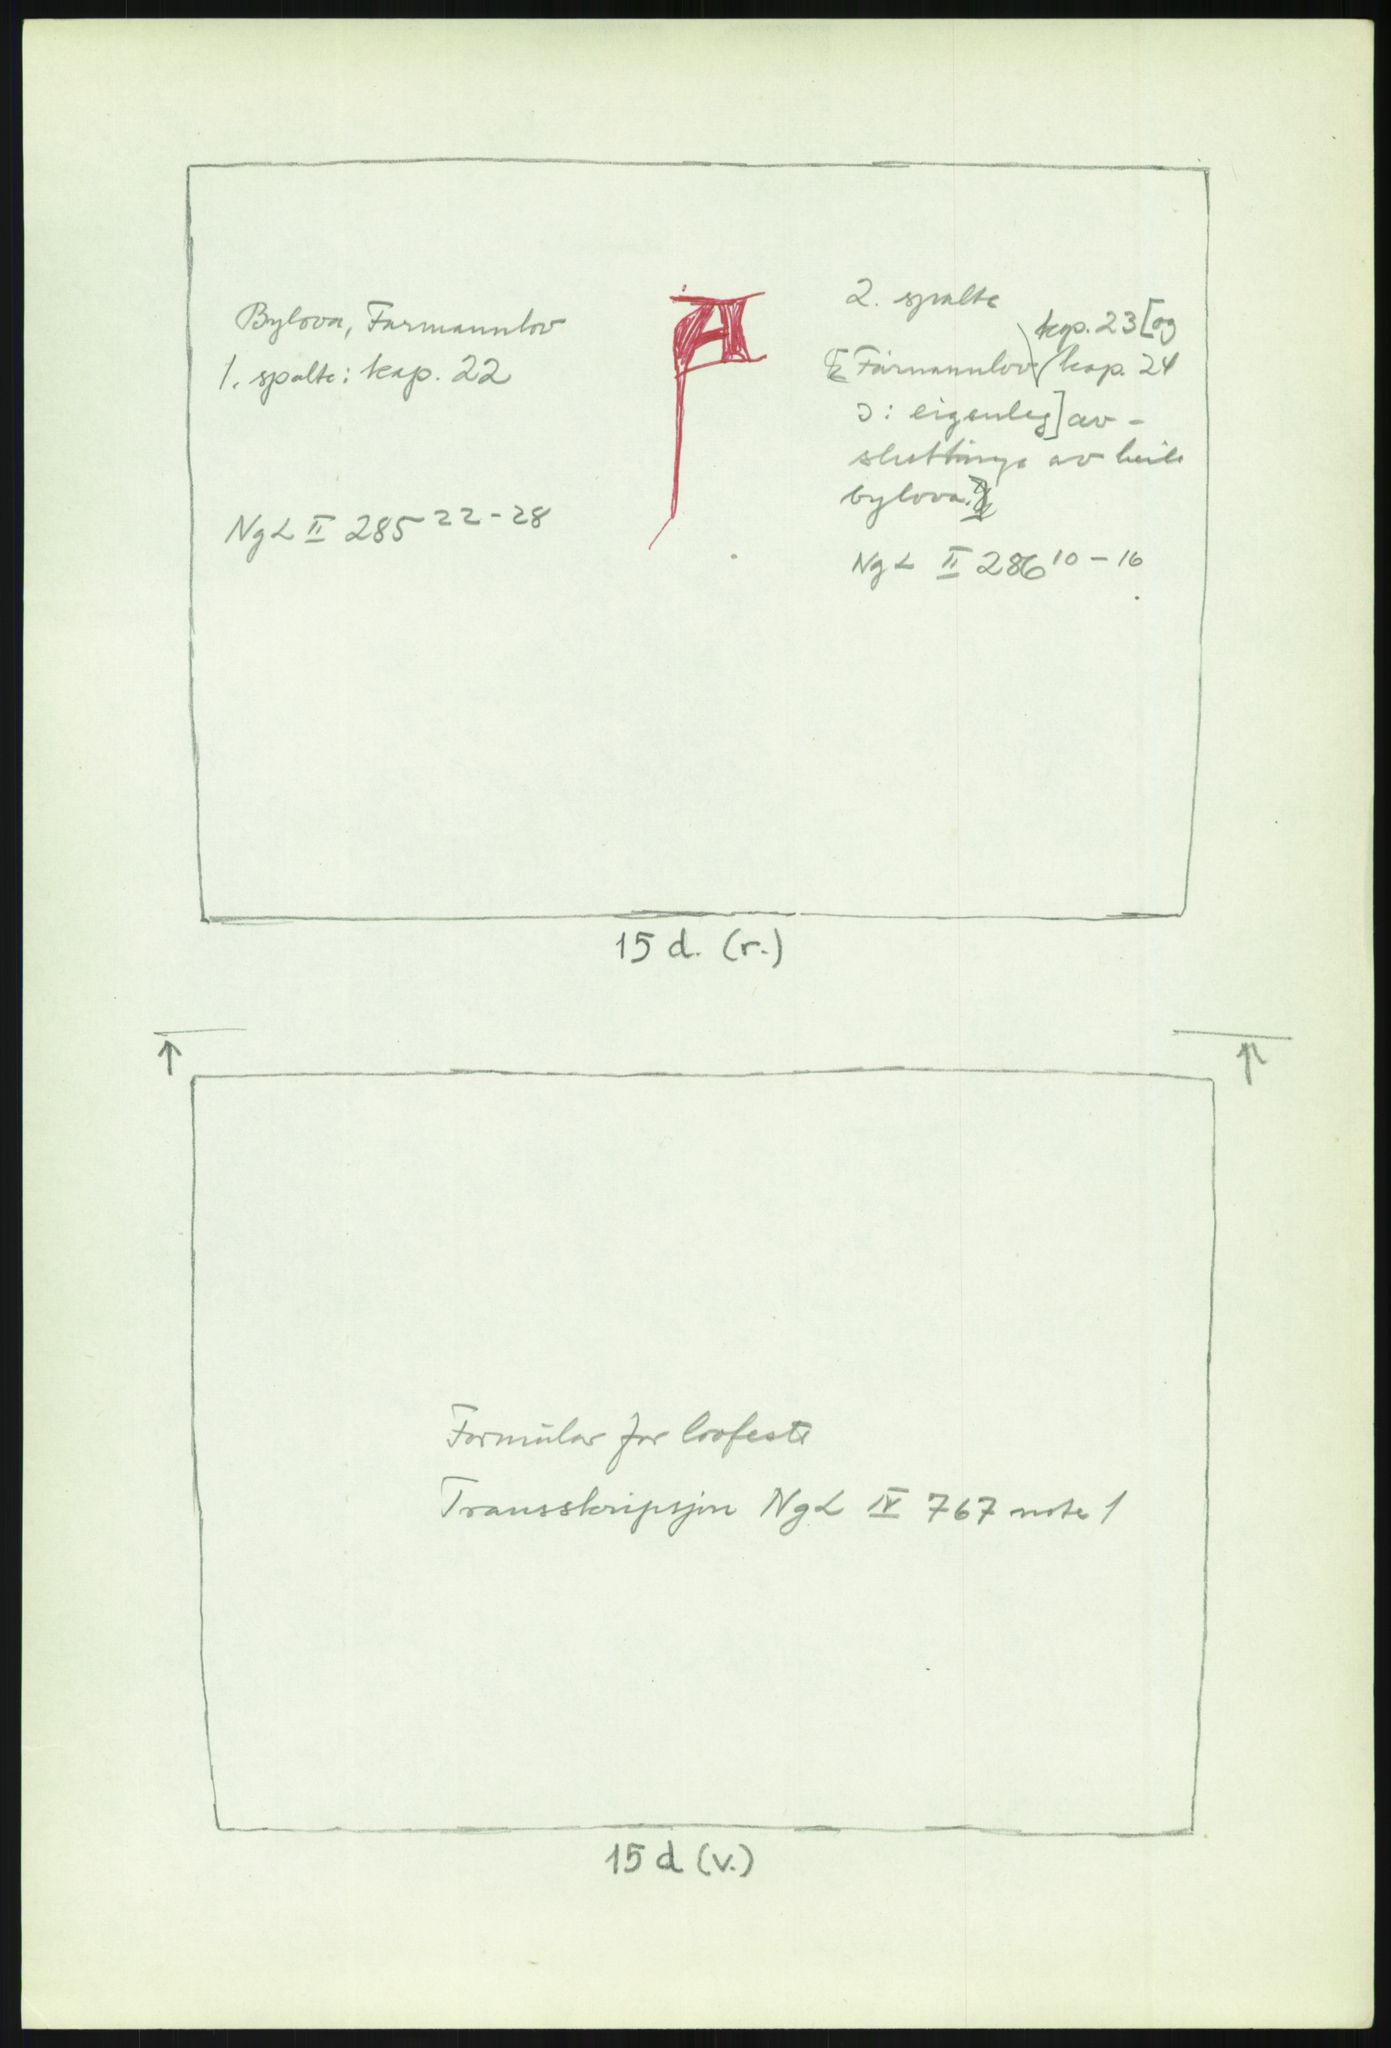 Bylova, Farmannlov
1. spalte: kap. 22
NgL II 285 22-28
A
2. spalte
Farmannlov kap. 23 [og
kap. 24
ɔ: eigenleg] av-
sluttinga av heile
bylova.
NgL II 286 10-16
15 d. (r.)
Formular for lovfeste
Transskripsjon NgL IV 767 note 1
15 d (v.)